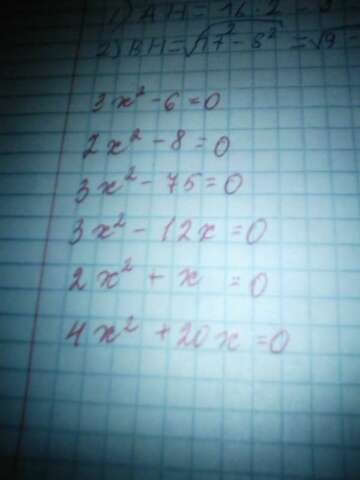 1) AH = 16 : 2 =
2) BH = √17² - 8² = √9
3x² - 6 = 0
2x² - 8 = 0
3x² - 75 = 0
3x² - 12x = 0
2x² + x = 0
4x² + 20x = 0